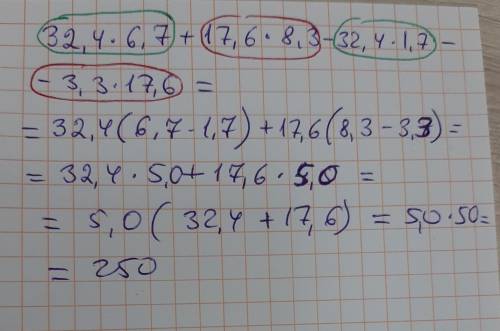 32,4·6,7+17,6·8,3-32,4·1,7-
-3,3·17,6=
=32,4(6,7-1,7)+17,6(8,3-3,3)=
=32,4·5,0+17,6·5,0=
=5,0(32,4+17,6)=5,0·50=
=250